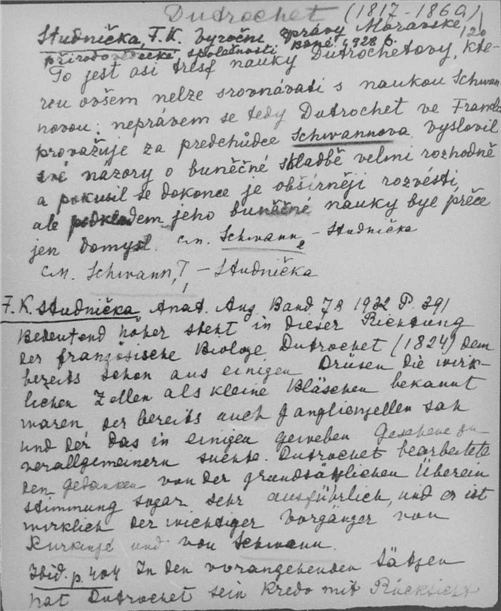 Dutrochet (1817-1869)
Studnička, F.K. Výroční zprávy Moravske
přírodovědecké společnosti 1928 p. 120
To jest asi tresť nauky Dutrochetovy, kte-
rou ovšem nelze srovnávati s naukou Schwan
novou: neprávem se tedy Dutrochet ve Francii
provažuje za předchůdce Schwannova vyslovil
své názory o buněčné skladbě velmi rozhodně
a pokusil se dokonce je obšírněji rozvésti,
ale podkladem jeho buněčné nauky bye přece
jen domysl. см. Schwann, - Studnička
см. Schwann, ! - Studnička
F. K. Studnička, Anat. Anz Band 78 1932 P. 391
Bedeutend höher steht in dieser Richtung
der französische Biologe Dutrochet (1824) dem
bereits schon aus einigen Drüsen die wirk-
lichen Zellen als kleine Bläschen bekannt
waren, der bereits auch Ganglienzellen sah
und der das in einigen geweben Gesehene zu
verallgemeinern suchte. Dutrochet bearbeitete
den Gedanken von der grundsätzlichen Überein
stimmung sogar sehr ausführlich, und er ist
wirklich der wichtiger Vorgänger von
Purkinje und von Schwann.
Ibid. p. 404 In den vorangehenden Sätzen
hat Dutrochet sein Kredo mit Rücksicht